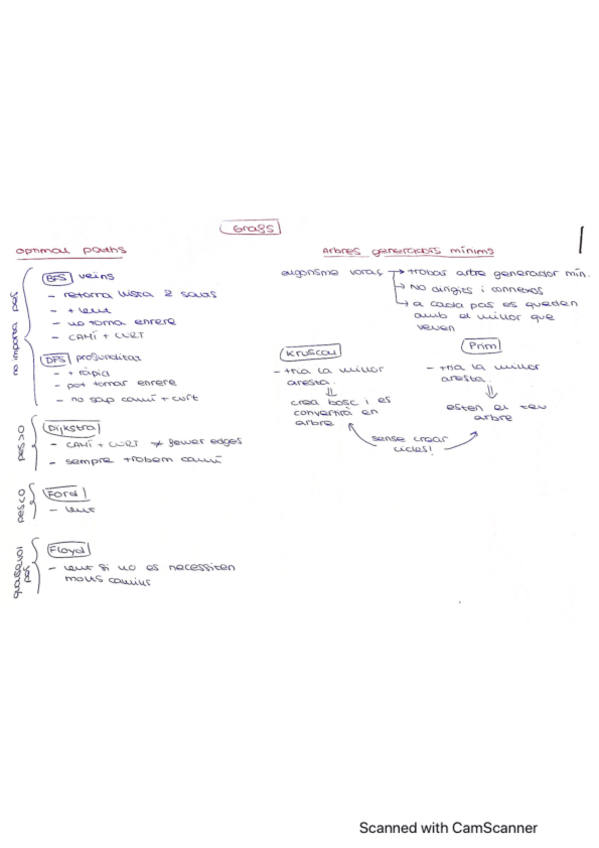 Grafs
optimal paths
no importa pes
BFS veins
- retorna llista 2 salts
- + lent
- no torna enrere
- CAMÍ + CURT
DFS profunditat
- + ràpid
- pot tornar enrere
- no sap camí + curt
pes>0
Dijkstra
- CAMÍ + CURT ≠ fewer edges
- sempre trobem camí
pes<0
Ford
- lent
qualsevol pes
Floyd
- lent si no es necessiten
molts camins
Arbres generadors mínims
algorisme voraç → trobar arbre generador mín.
→ NO dirigits i connexos
→ a cada pas es queden
amb el millor que
veuen
Kruscal
- tria la millor
aresta.
⇓
crea bosc i es
convertirà en
arbre
Prim
- tria la millor
aresta.
⇓
esten el teu
arbre
sense crear
cicles!
Scanned with CamScanner